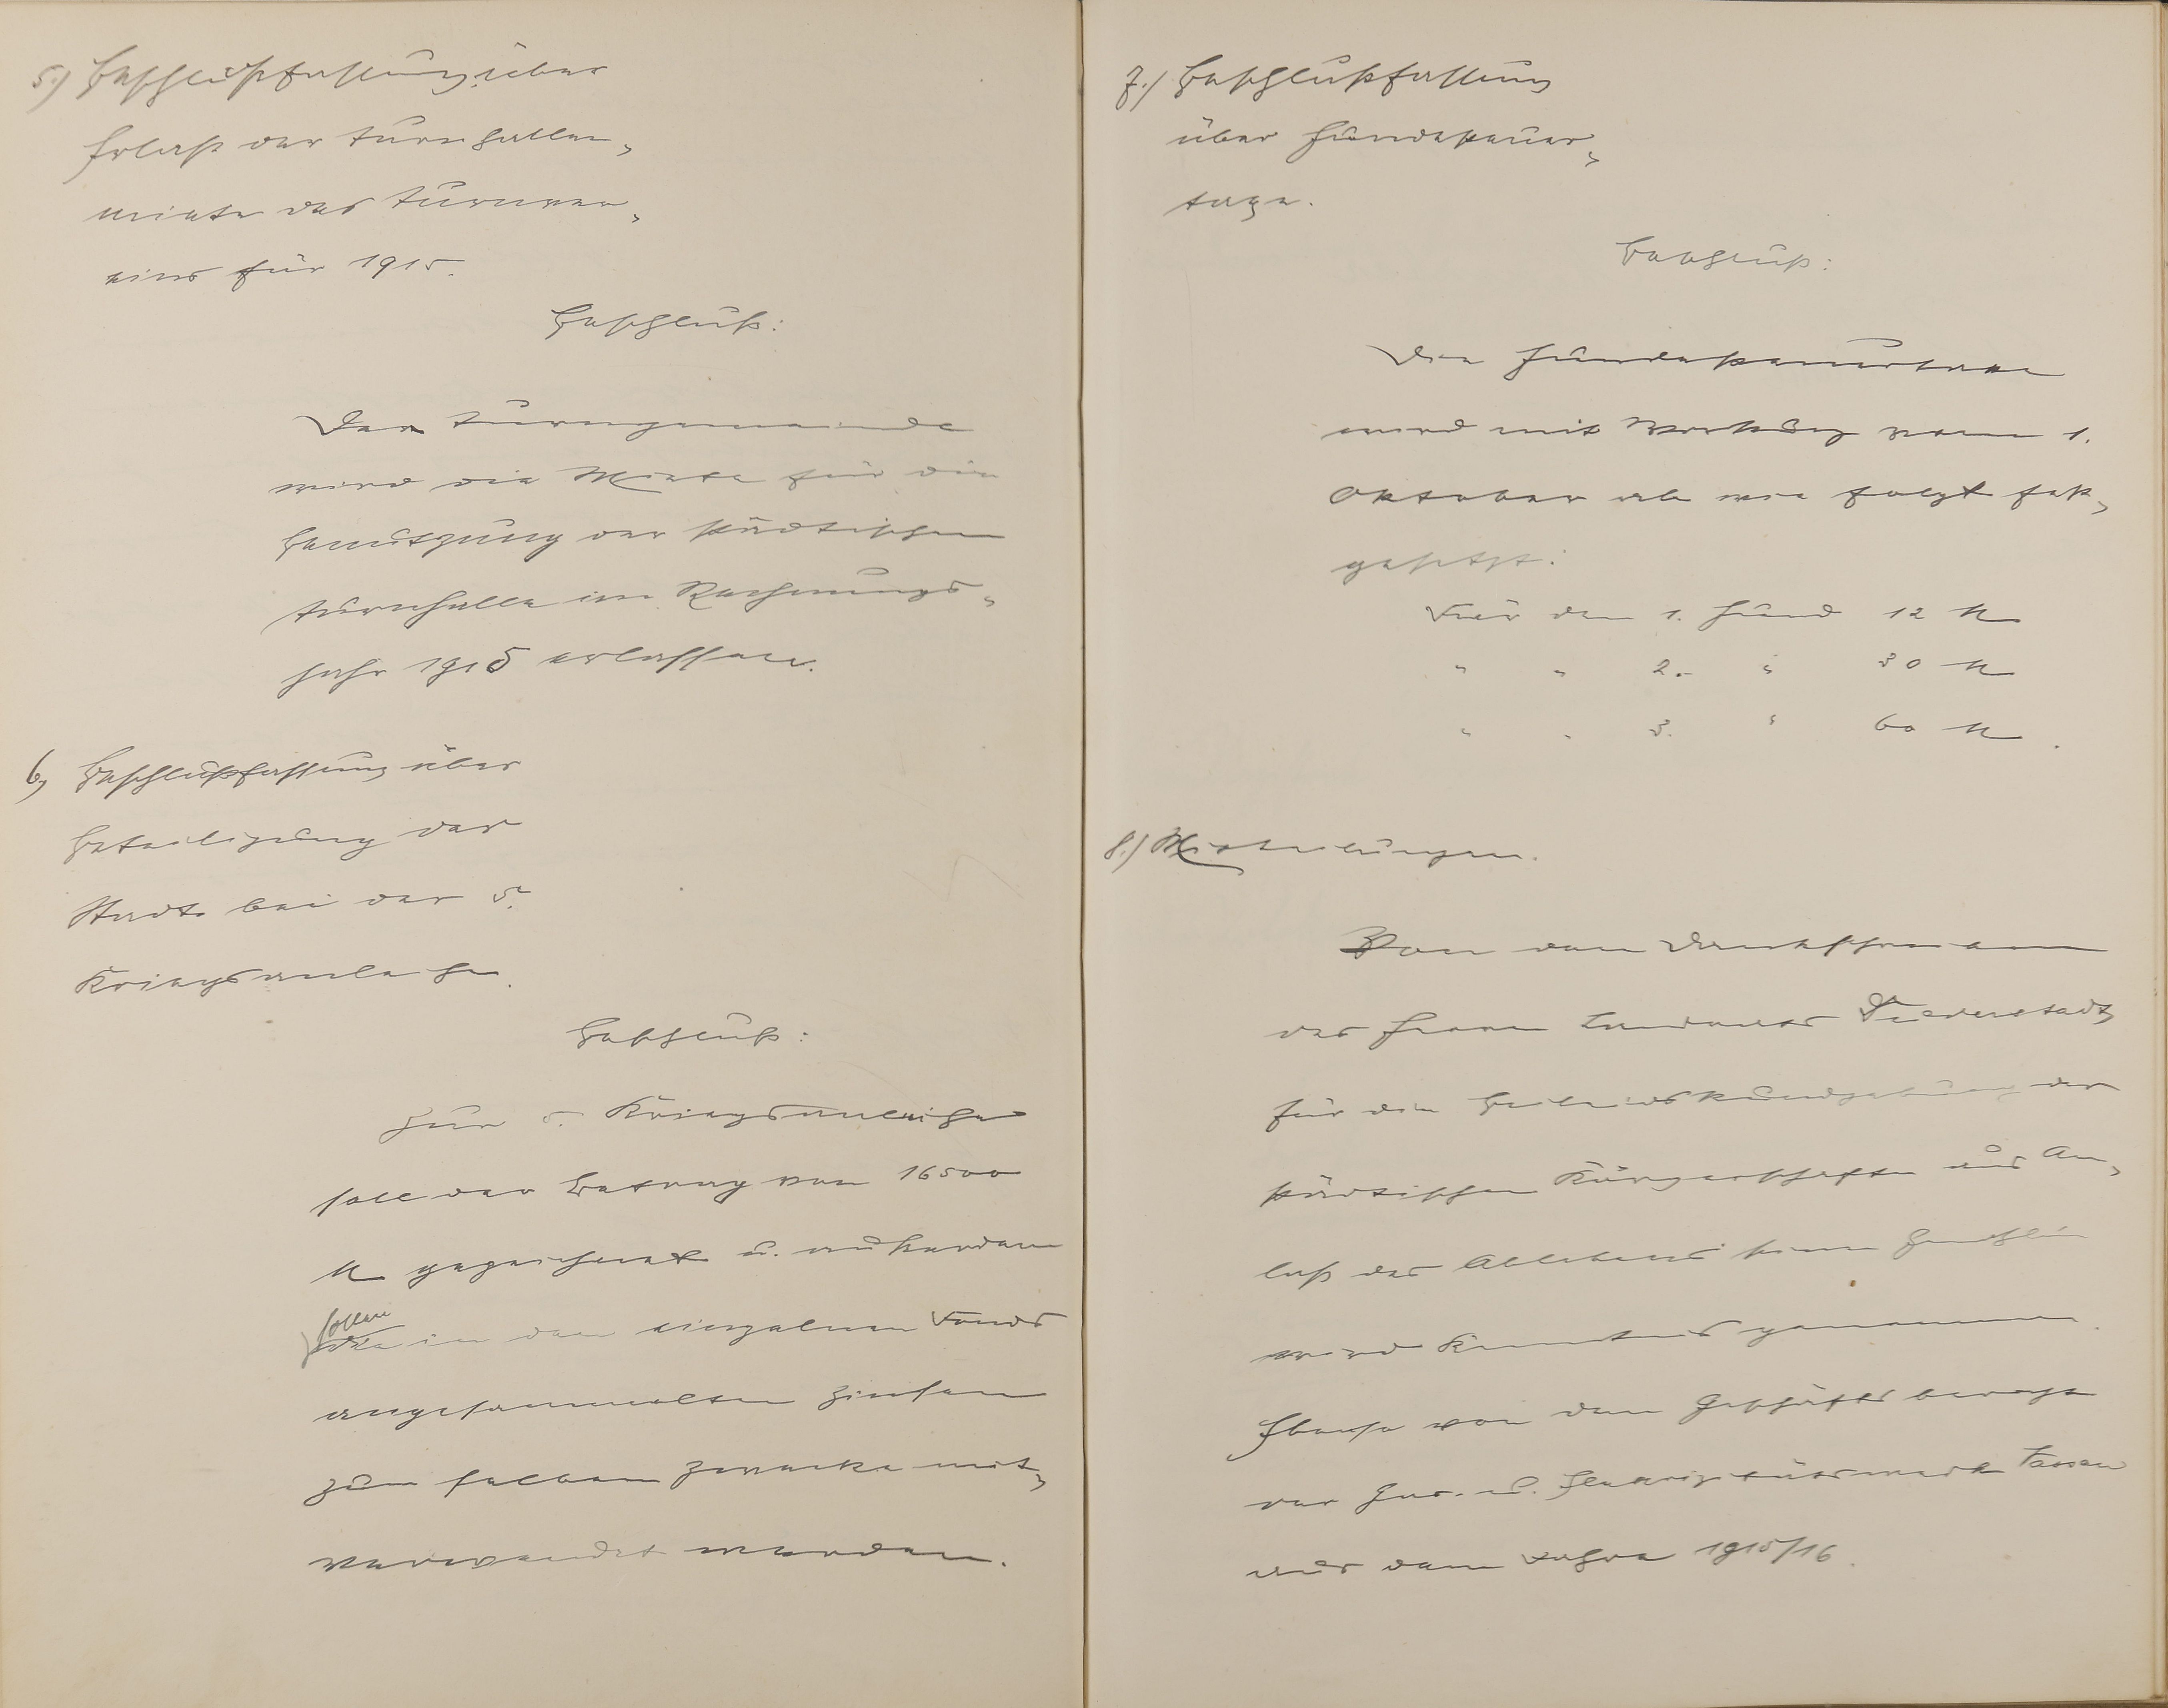 5.) Beschlußfassung über
Erlaß der Turnhallen-
miete des Turnver-
eins für 1915.
Beschluß:
Der Turngemeinde
wird die Miete für die
Benutzung der städtischen
Turnhalle im Rechnungs-
jahr 1915 erlassen.
6, Beschlußfassung über
Beteiligung der
Stadt bei der 5.
Kriegsanleihe.
Beschluß:
Zur 5. Kriegsanleihe
soll der Betrag von 16500
M gezeichnet u. außerdem
sollen die in den einzelnen Fonds
angesammelten Zinsen
zum selben Zwecke mit-
verwendet werden.
7.) Beschlußfassung
über Hundesteuer-
taxe.
Beschluß:
Die Hundesteuertaxe
wird mit Wirkung vom 1.
Oktober ab wie folgt fest-
gesetzt:
Für den 1. Hund 12 M
" " 2. " 30 M
" " 3. " 60 M.
8.) Mitteilungen.
Von dem Dankschreiben
des Herrn Landrats Diederstadt
für die Beileidskundgebung der
städtischen Körperschaften aus An-
laß des Ablebens seiner Gemahlin
wird Kenntnis genommen.
Ebenso von dem Geschäftsbericht
der Gas- u. Elektrizitätswerke
aus dem Jahre 1915/16.